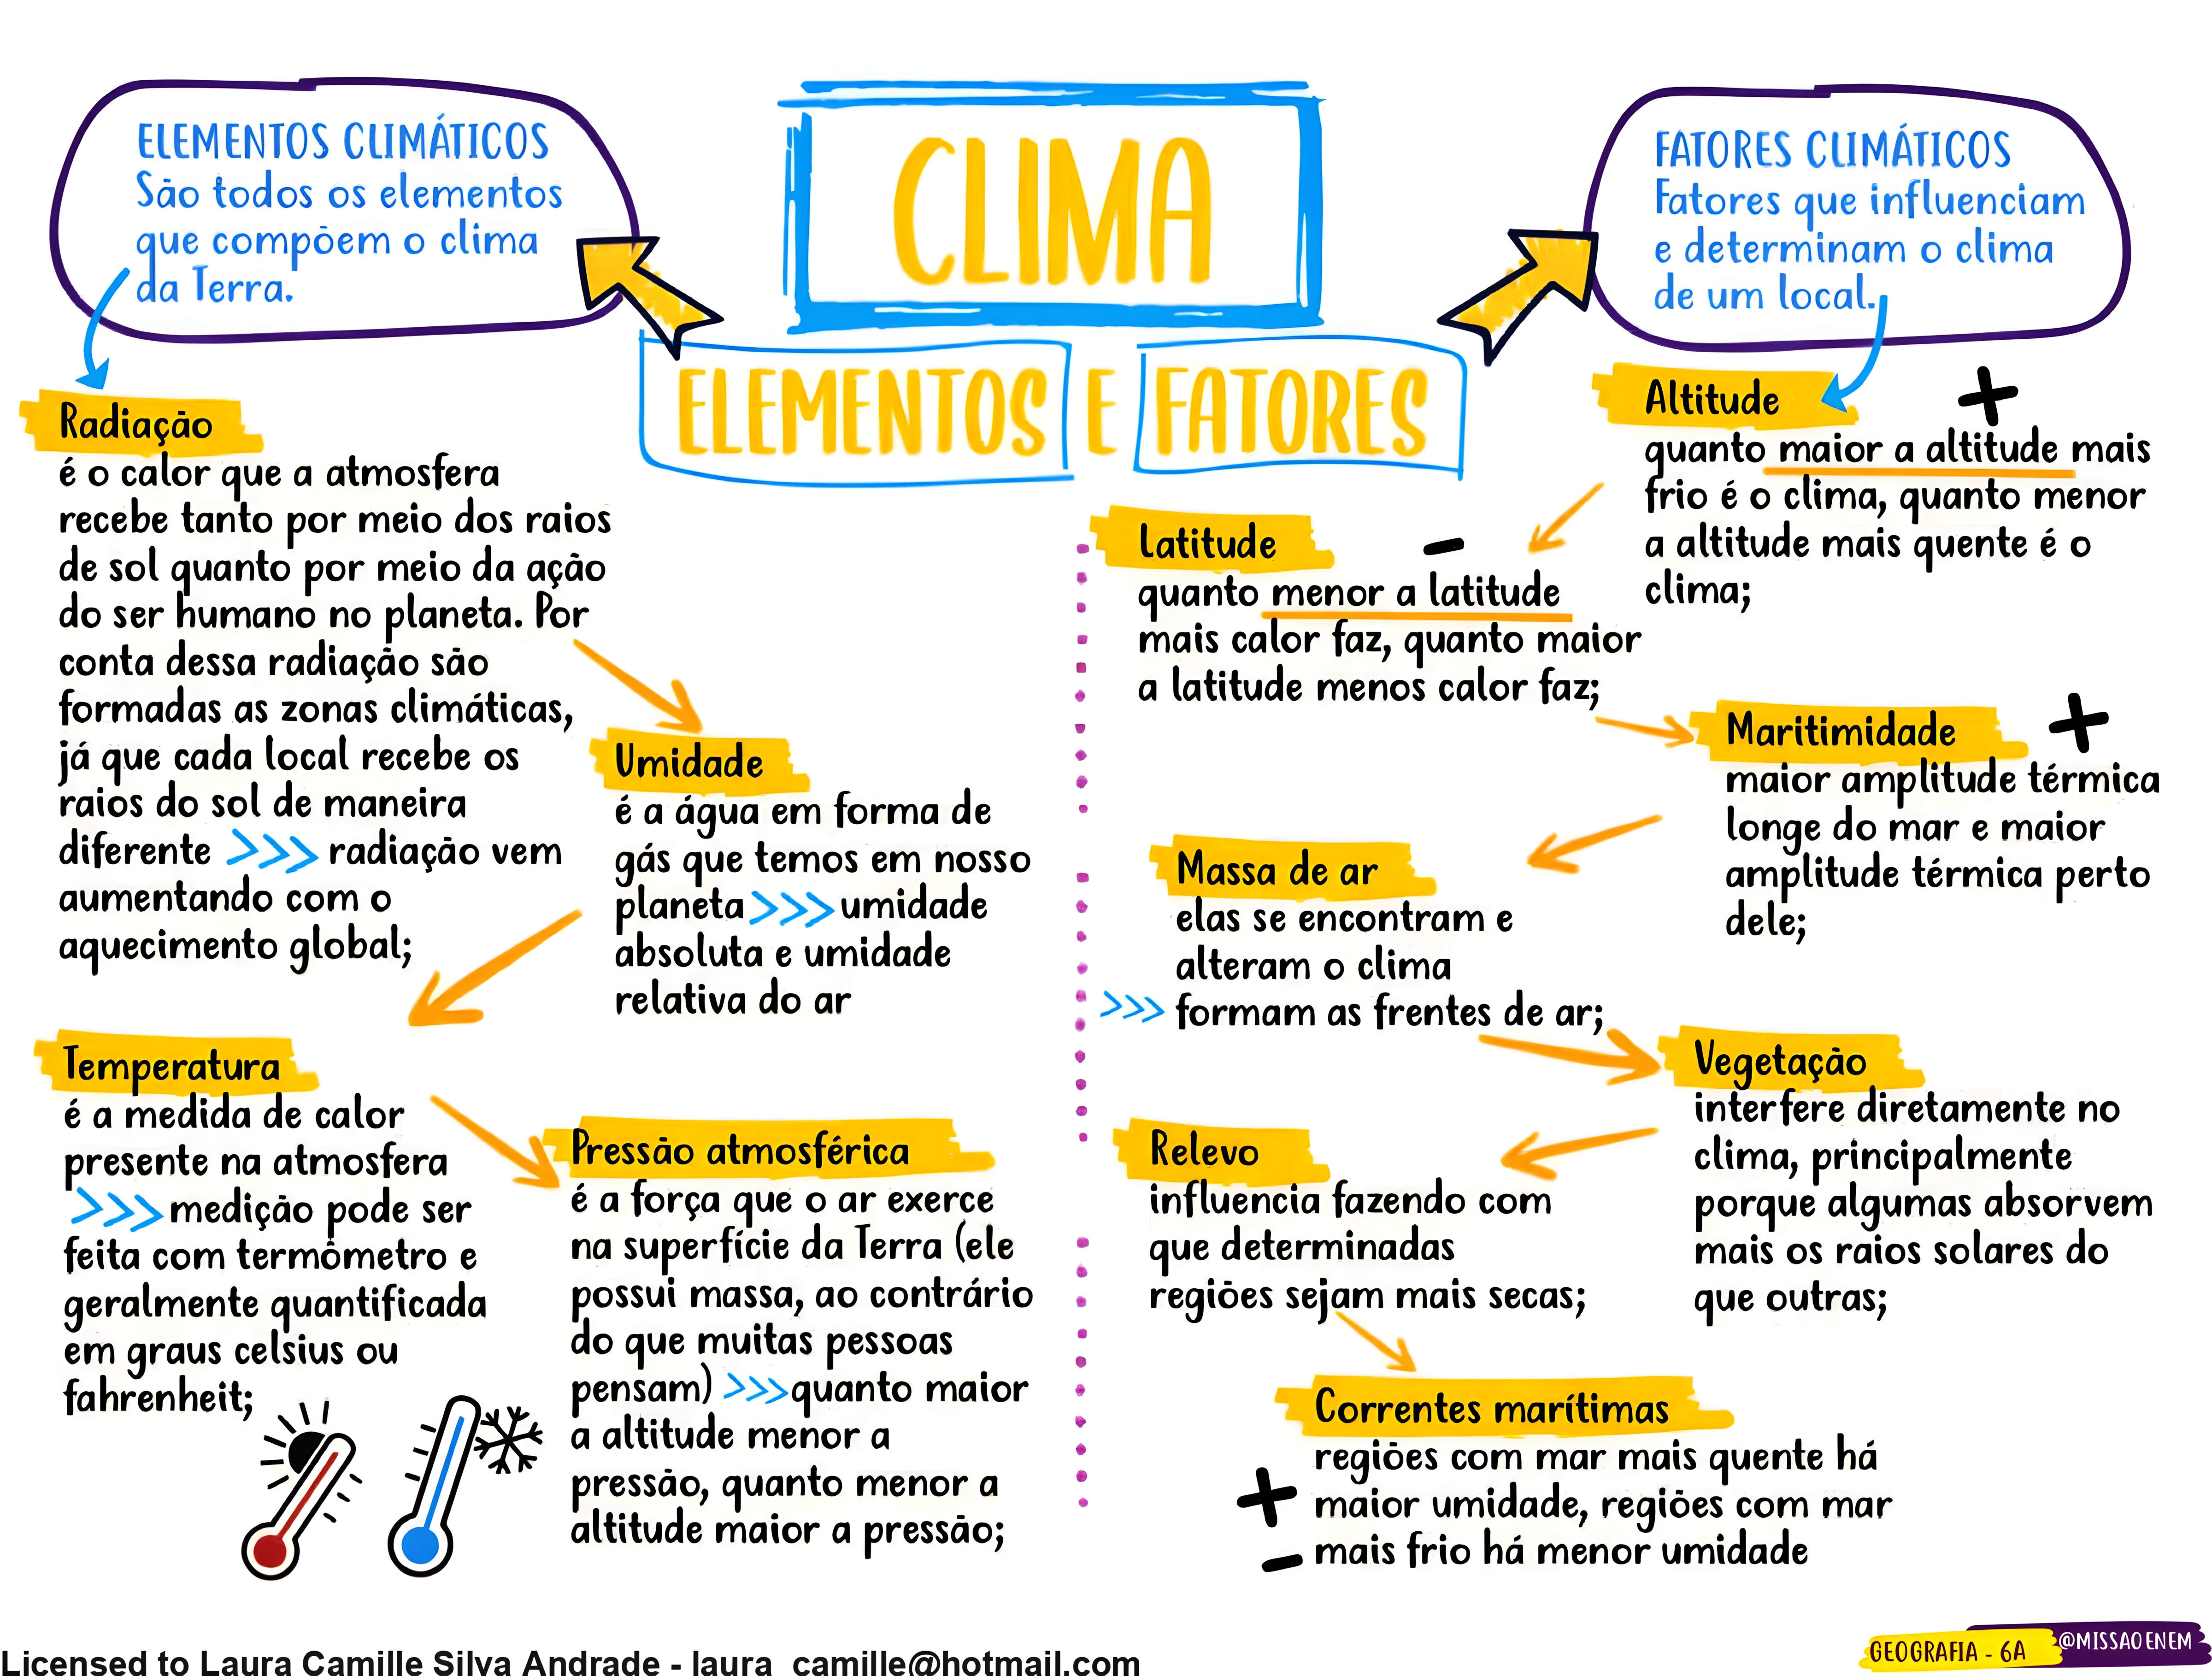 CLIMA
ELEMENTOS E FATORES
ELEMENTOS CLIMÁTICOS
São todos os elementos
que compõem o clima
da Terra.
Radiação
é o calor que a atmosfera
recebe tanto por meio dos raios
de sol quanto por meio da ação
do ser humano no planeta. Por
conta dessa radiação são
formadas as zonas climáticas,
já que cada local recebe os
raios do sol de maneira
diferente >>> radiação vem
aumentando com o
aquecimento global;
Umidade
é a água em forma de
gás que temos em nosso
planeta >>> umidade
absoluta e umidade
relativa do ar
Temperatura
é a medida de calor
presente na atmosfera
>>> medição pode ser
feita com termômetro e
geralmente quantificada
em graus celsius ou
fahrenheit;
Pressão atmosférica
é a força que o ar exerce
na superfície da Terra (ele
possui massa, ao contrário
do que muitas pessoas
pensam) >>> quanto maior
a altitude menor a
pressão, quanto menor a
altitude maior a pressão;
FATORES CLIMÁTICOS
Fatores que influenciam
e determinam o clima
de um local.
Altitude +
quanto maior a altitude mais
frio é o clima, quanto menor
a altitude mais quente é o
clima;
Latitude -
quanto menor a latitude
mais calor faz, quanto maior
a latitude menos calor faz;
Maritimidade +
maior amplitude térmica
longe do mar e maior
amplitude térmica perto
dele;
Massa de ar
elas se encontram e
alteram o clima
>>> formam as frentes de ar;
Vegetação
interfere diretamente no
clima, principalmente
porque algumas absorvem
mais os raios solares do
que outras;
Relevo
influencia fazendo com
que determinadas
regiões sejam mais secas;
Correntes marítimas
regiões com mar mais quente há
+ maior umidade, regiões com mar
- mais frio há menor umidade
Licensed to Laura Camille Silva Andrade - laura_camille@hotmail.com
GEOGRAFIA - 6A
@MISSAOENEM